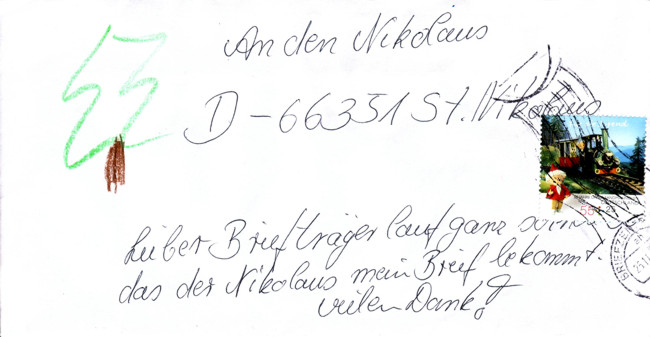 An den Nikolaus
D-66351 St. Nikolaus
55
Lieber Briefträger lauf ganz
das der Nikolaus mein Brief bekommt.
vielen Dank!